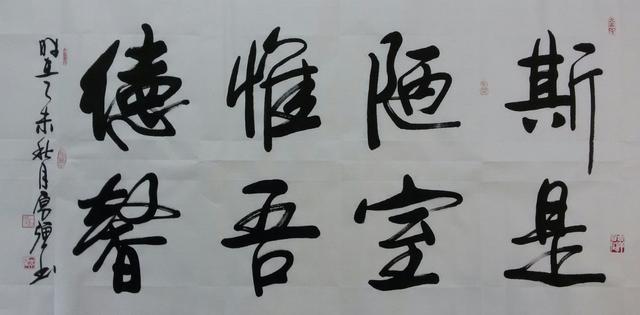 斯是
陋室
惟吾
德馨
乙未秋月